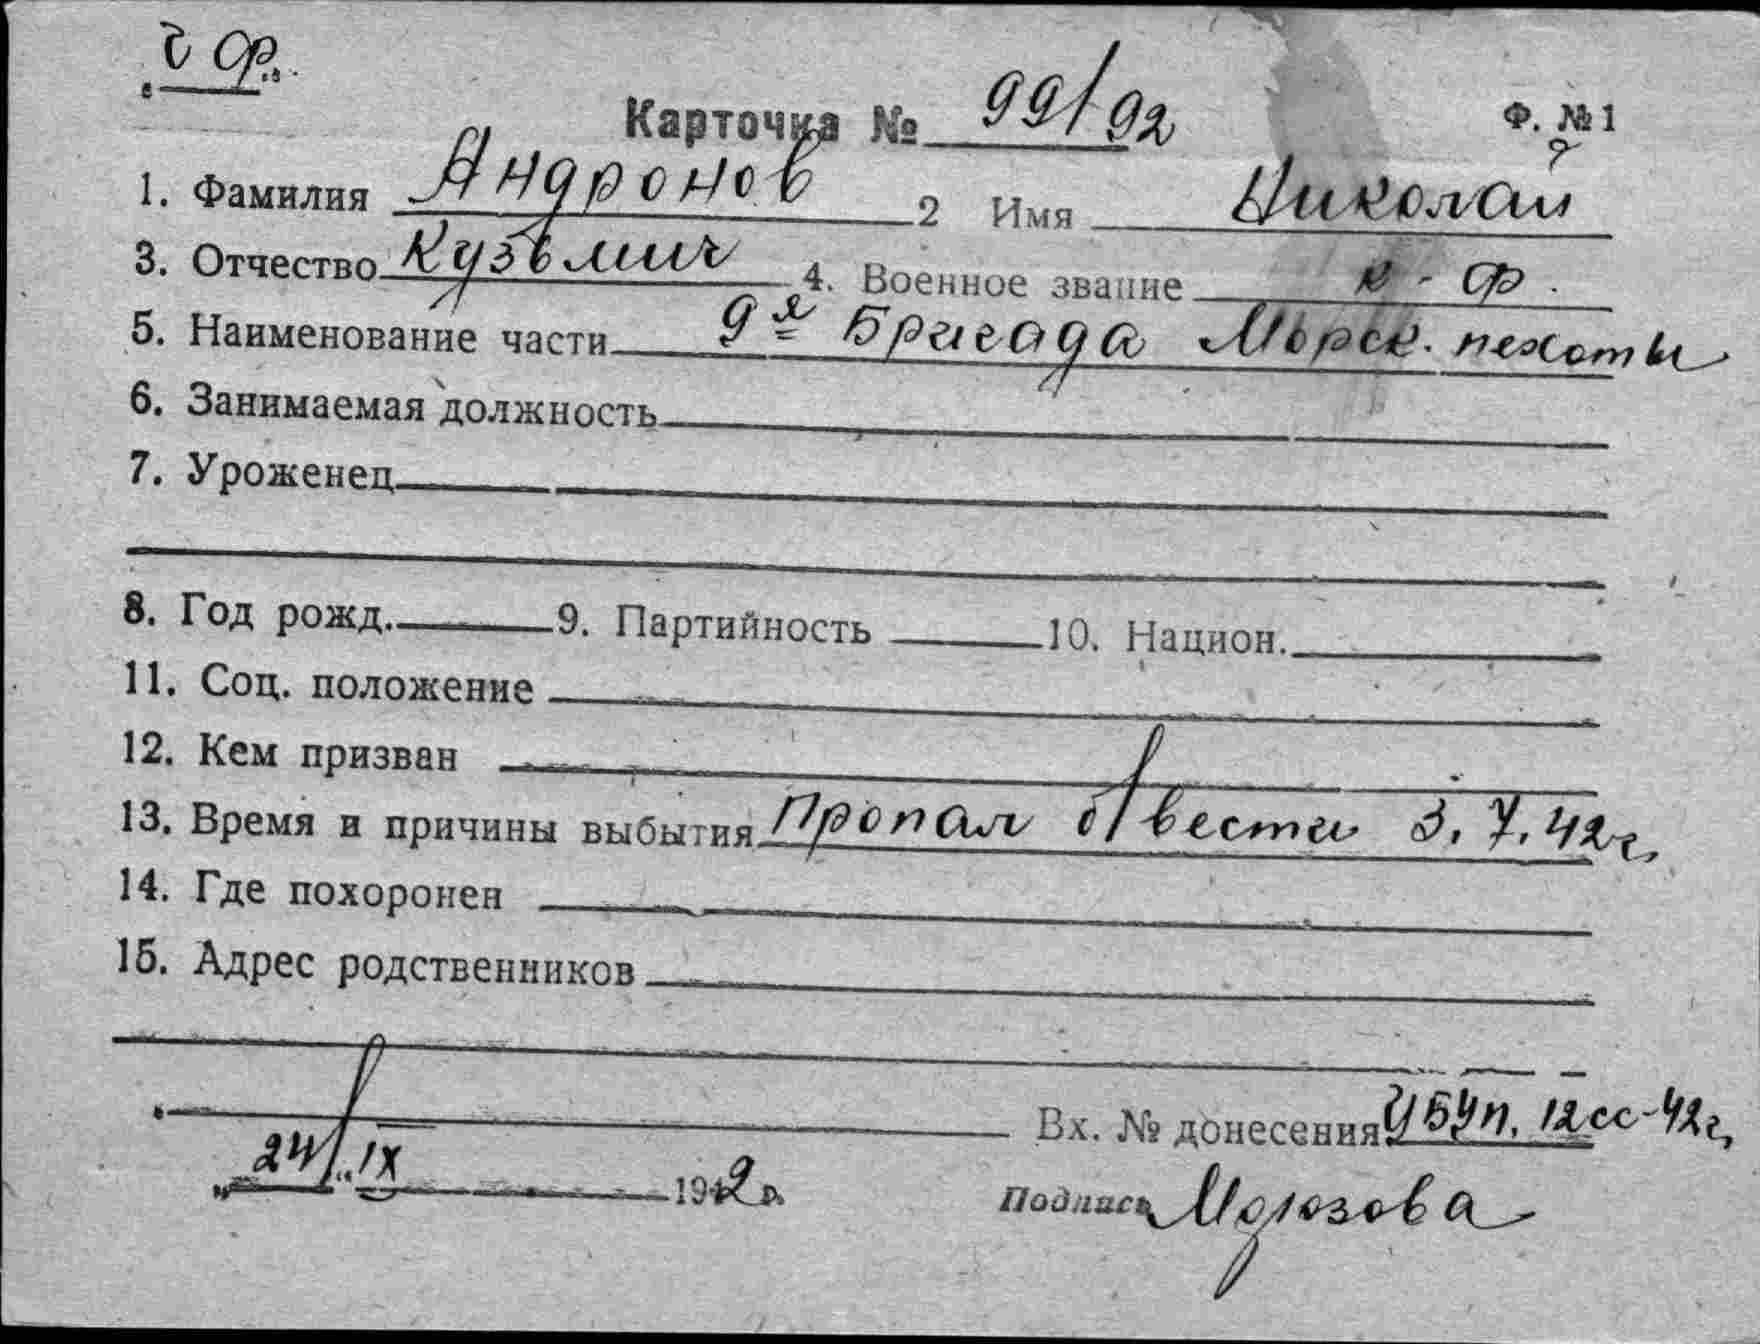 Ч Ф.
Карточка № 99/92 Ф. № 1
1. Фамилия Андронов 2 Имя Николай
3. Отчество Кузьмич 4. Военное звание к-ф.
5. Наименование части 9я Бригада Морск. пехоты
6. Занимаемая должность
7. Уроженец
8. Год рожд. 9. Партийность 10. Национ.
11. Соц. положение
12. Кем призван
13. Время и причины выбытия Пропал б/вести 3.7.42г.
14. Где похоронен
15. Адрес родственников
Вх. № донесения УБУп. 12сс-42г.
24/IX 1942 г.
Подпись Морозова